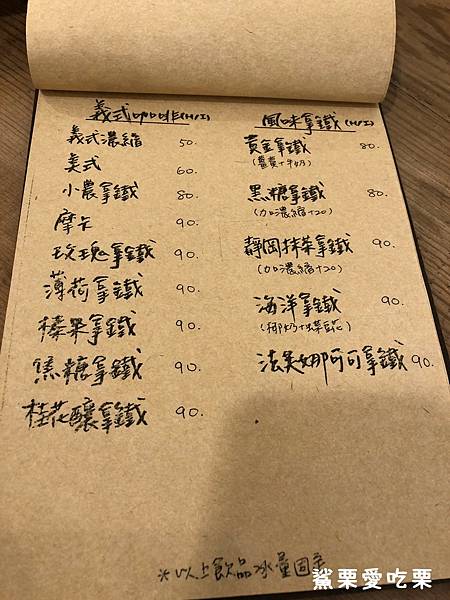 義式咖啡(H/I)
義式濃縮 50.
美式 60.
小農拿鐵 80.
摩卡 90.
玫瑰拿鐵 90.
薄荷拿鐵 90.
榛果拿鐵 90.
焦糖拿鐵 90.
桂花釀拿鐵 90.
風味拿鐵(H/I)
黃金拿鐵 80.
(薑黃+牛奶)
黑糖拿鐵 80.
(加濃縮+20)
靜岡抹茶拿鐵 90.
(加濃縮+20)
海洋拿鐵 90.
(椰奶+蝶豆花)
法芙娜可可拿鐵 90.
※以上飲品冰量固定
鯊栗愛吃栗